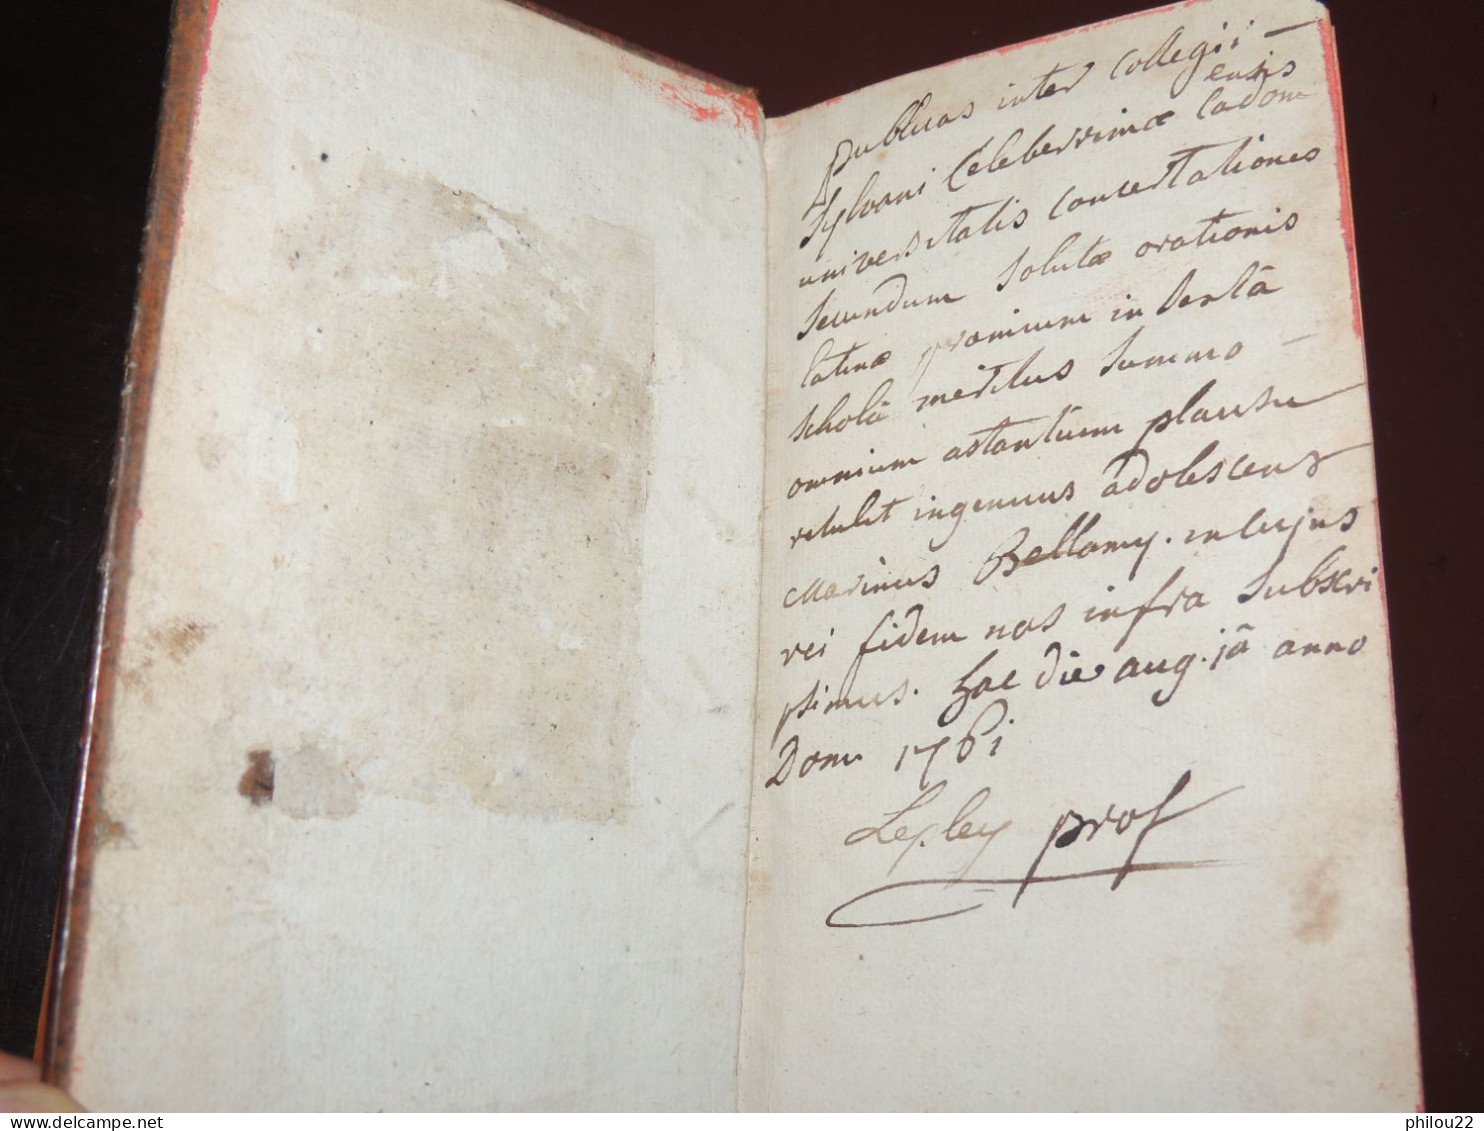 publicas inter Collegii —
Sylvani Celeberrimæ Cadom
ensis
universitatis concertationes
secundum solutæ orationis
latinæ præmium in sextâ
scholâ meritus summo —
omnium astantium plausu
retulit ingenuus adolescens
Marinus Bellamy. in cujus
rei fidem nos infra subscri
psimus. hac die aug. jâ anno
Dom 1761
prof
philou22